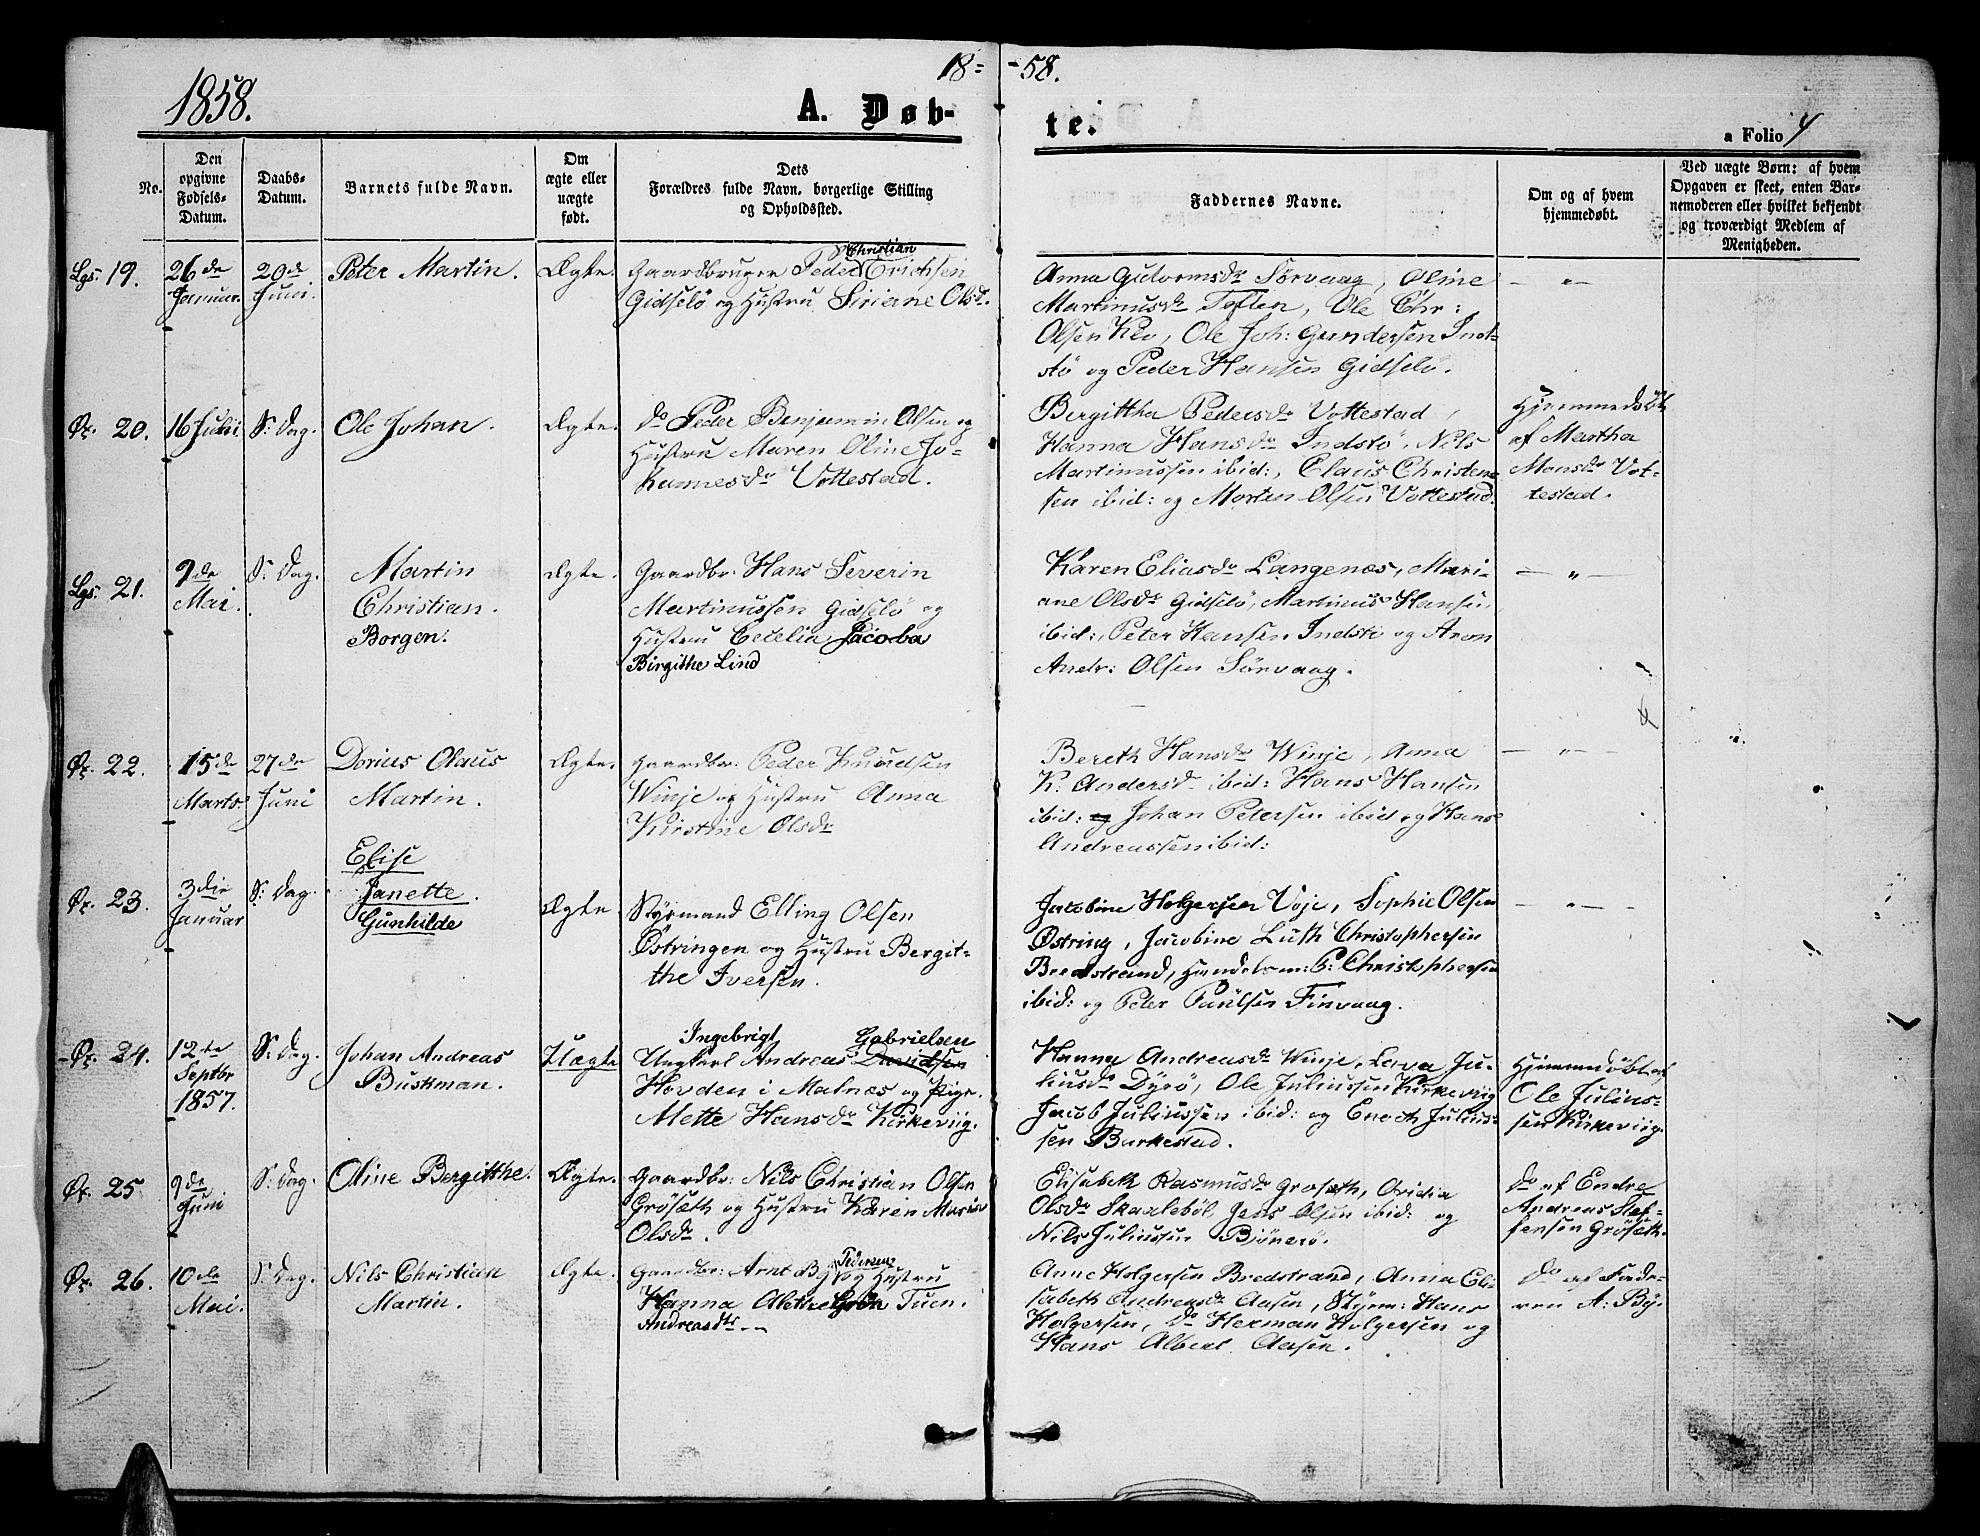 1858.
18=
-58.
A. Døb-
te.
a Folio 4
No.
Den
opgivne
Fødsels-
Datum.
Daabs-
Datum.
Barnets fulde Navn.
Om
ægte eller
uægte
født.
Dets
Forældres fulde Navn, borgerlige Stilling
og Opholdssted.
Faddernes Navne.
Om og af hvem
hjemmedøbt.
Ved uægte Børn: af hvem
Opgaven er skeet, enten Bar-
nemoderen eller hvilket bekjendt
og troværdigt Medlem af
Menigheden.
Lgs. 19.
26de
Januar.
20de
Juni.
Peter Martin.
Ægte.
Christian
Gaardbruger Peder Erichsen
Gidslö og Hustru Siriane Olsdr.
Anna Gutormsdr Sörvaag, Oline
Martinusdr Toften, Ole Chr:
Olsen Klo, Ole Joh: Gundersen Ind-
stö og Peder Hansen Gidslö.
— " —
Øx. 20.
16 Juni
S: Dag.
Ole Johan.
Ægte.
do Peder Benjamin Olsen og
Hustru Maren Oline Jo-
hannesdr Vottestad.
Bergittha Pedersdr Vottestad,
Hanna Hansdr Indstö, Nils
Martinussen ibid:, Claus Christen-
sen ibid: og Morten Olsen Vottestad.
Hjemmedöbt
af Martha
Monsdr Vot-
testad.
Lgs. 21.
9de
Mai.
S: Dag.
Martin
Christian
Borgen.
Ægte.
Gaardbr. Hans Severin
Martinussen Gidslö og
Hustru Cecelia Jacoba
Birgithe Lind
Karen Eliasdr Langenæs, Mari-
ane Olsdr Gidslö, Martinus Hansen
ibid:, Peter Hansen Indstö og Aron
Andr: Olsen Sörvaag.
— " —
Øx. 22.
15de
Marts.
27de
Juni
Dorius Olaus
Martin.
Ægte.
Gaardbr: Peder Knudsen
Winje og Hustru Anna
Kirstine Olsdr
Bereth Hansdr Winje, Anna
K. Andersdr ibid: Hans Hansen
ibid: og Johan Petersen ibid og Hans
Andreassen ibid:
— " —
Øx. 23.
3die
Januar
S: Dag.
Elise
Janette.
Gunhilde
Ægte
Styrmand Elling Olsen
Östringen og Hustru Bergit-
the Iversen.
Jacobine Holgersen Voje, Sophie Olsen
Østring, Jacobine Luth Christophersen
Bredstrand, Handelsm: P: Christophersen
ibid: og Peter Paulsen Finvaag.
— " —
Øx. 24.
12te
Septbr
1857.
S: Dag.
Johan Andreas
Buskman.
Uægte
Ingebrigt Gabrielsen
Ungkarl Andreas Davidsen
Hovden i Malnæs og Pige.
Mette Hansdr Kirkeviig.
Hanna Andreasdr Winje, Lova Ju-
liusdr Dyrö, Ole Juliussen Kirkeviig
Jacob Juliussen ibid: og Enoch Julius-
sen Barkestad.
Hjemmedöbt af
Ole Julius-
sen Kirkeviig.
Øx. 25
9de
Juni
S: Dag.
Oline Bergitthe.
Ægte.
Gaardbr: Nils Christian Olsen
Grösæth og Hustru Karen Maria
Olsdr.
Elisabeth Rasmusdr Grosæth, Ovidia
Olsdr Skaaleböl, Jens Olsen ibid: og
Nils Juliussen Björnrö.
do af Endre
Andreas Stef-
fensen Grösæth.
Øx. 26.
10de
Mai.
S: Dag.
Nils Christian
Martin.
Ægte.
Pedersen
Gaardbr: Arnt By og Hustru
Hanna Aletke Grön Tuen.
Andreasdtr
Anne Holgersen Bredstrand, Anna Eli-
sabeth Andreasdr Aasen, Styrm: Hans
Holgersen, do Herman Holgersen og
Hans Albert Aasen.
do af Fade-
ren A: By.